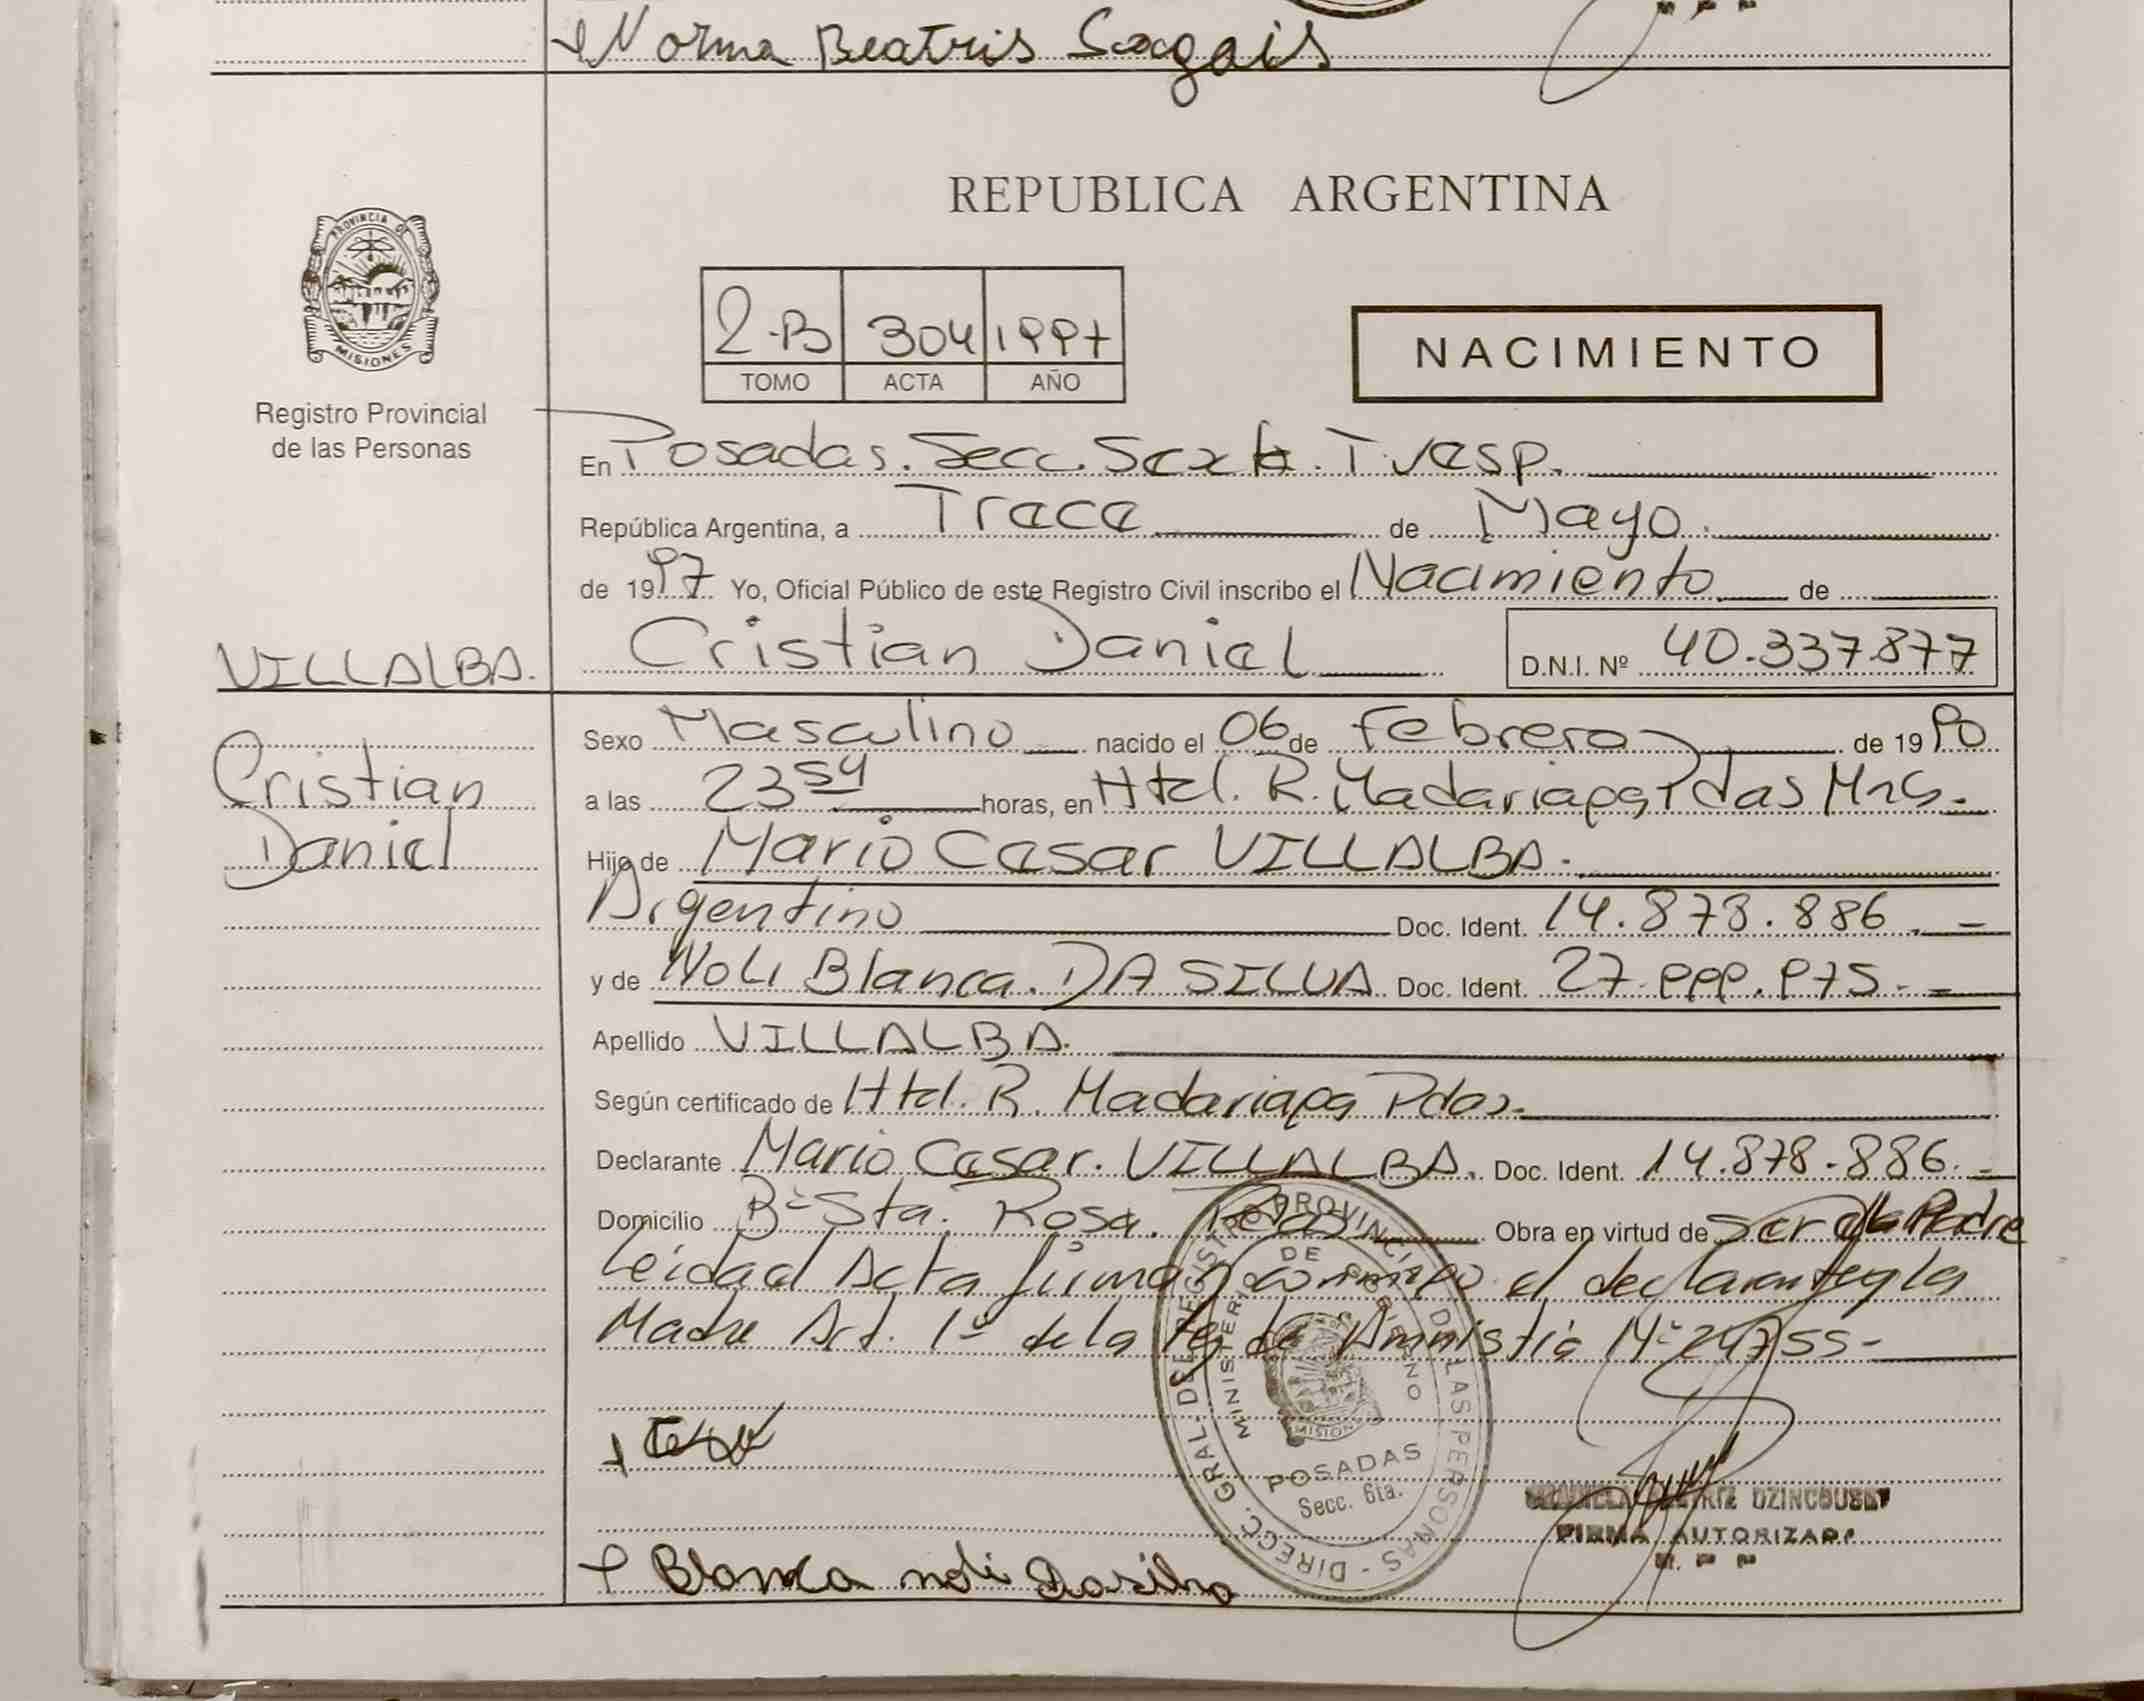 Norma Beatris
REPUBLICA ARGENTINA
PROVINCIA DE MISIONES
2-B 304 1997
TOMO ACTA AÑO
NACIMIENTO
Registro Provincial
de las Personas
En Posadas. Secc. Sexta. T. Vesp.
República Argentina, a Trece de Mayo.
de 1997 Yo, Oficial Público de este Registro Civil inscribo el Nacimiento de
Cristian Daniel D.N.I. Nº 40.337.877
VILLALBA.
Cristian
Daniel
Sexo Masculino nacido el 06 de Febrero de 1990
a las 23 54 horas, en Htal. R. Madariaga Pdas Mns.
Hijo de Mario Cesar VILLALBA.
Argentino Doc. Ident. 14.878.886.
y de Noli Blanca. DA SILVA Doc. Ident. 27.999.975.
Apellido VILLALBA.
Según certificado de Htal. R. Madariaga Pdas.
Declarante Mario Cesar. VILLALBA. Doc. Ident. 14.878.886.
Domicilio Bº Sta. Rosa. Pdas Obra en virtud de ser el Padre
Leida el Acta firman conmigo el declarante y la
Madre Art. 1º de la Ley de Amnistia Nº 24755-
DIRECC. GRAL. DE REGISTRO PROVINCIAL DE LAS PERSONAS
MINISTERIO DE GOBIERNO
MISIONES
POSADAS
Secc. 6ta.
FIRMA AUTORIZADA
Blanca noli Dasilva